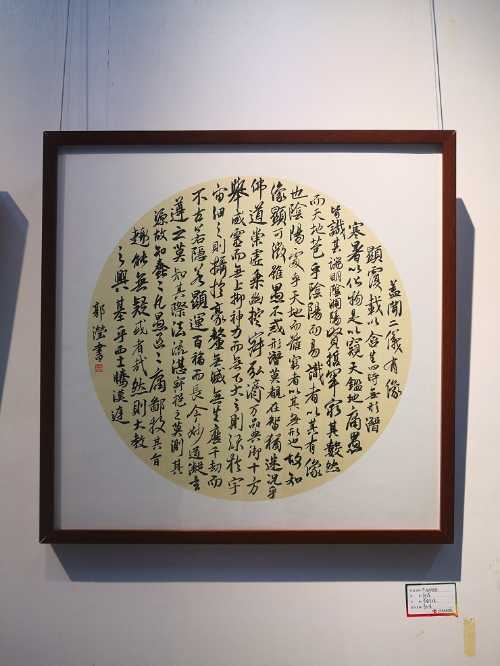 蓋聞二儀有像
顯覆載以含生四時無形潛
寒暑以化物是以窺天鑑地庸愚
皆識其端明陰洞陽賢哲罕窮其數然
而天地苞乎陰陽而易識者以其有像
也陰陽處乎天地而難窮者以其無形也故知
像顯可徵雖愚不惑形潛莫覩在智猶迷況乎
佛道崇虛乘幽控寂弘濟萬品典御十方
舉威靈而無上抑神力而無下大之則彌於宇
宙細之則攝於豪釐無滅無生歷千劫而
不古若隱若顯運百福而長今妙道凝玄
遵之莫知其際法流湛寂挹之莫測其
源故知蠢々凡愚區々庸鄙投其旨
趣能無疑或者哉然則大教
之興基乎西土騰漢庭
郭瀅書